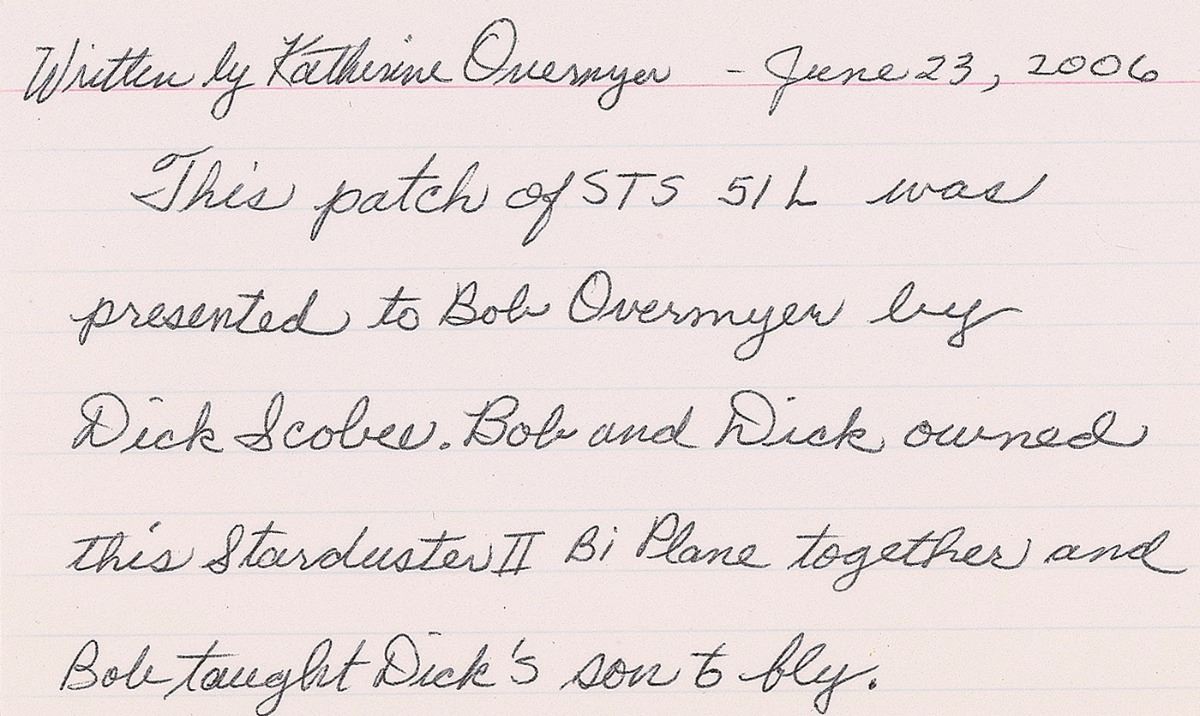 Written by Katherine Overmyer - June 23, 2006
This patch of STS 51L was
presented to Bob Overmyer by
Dick Scobee. Bob and Dick owned
this Starduster II Bi Plane together and
Bob taught Dick's son to fly.